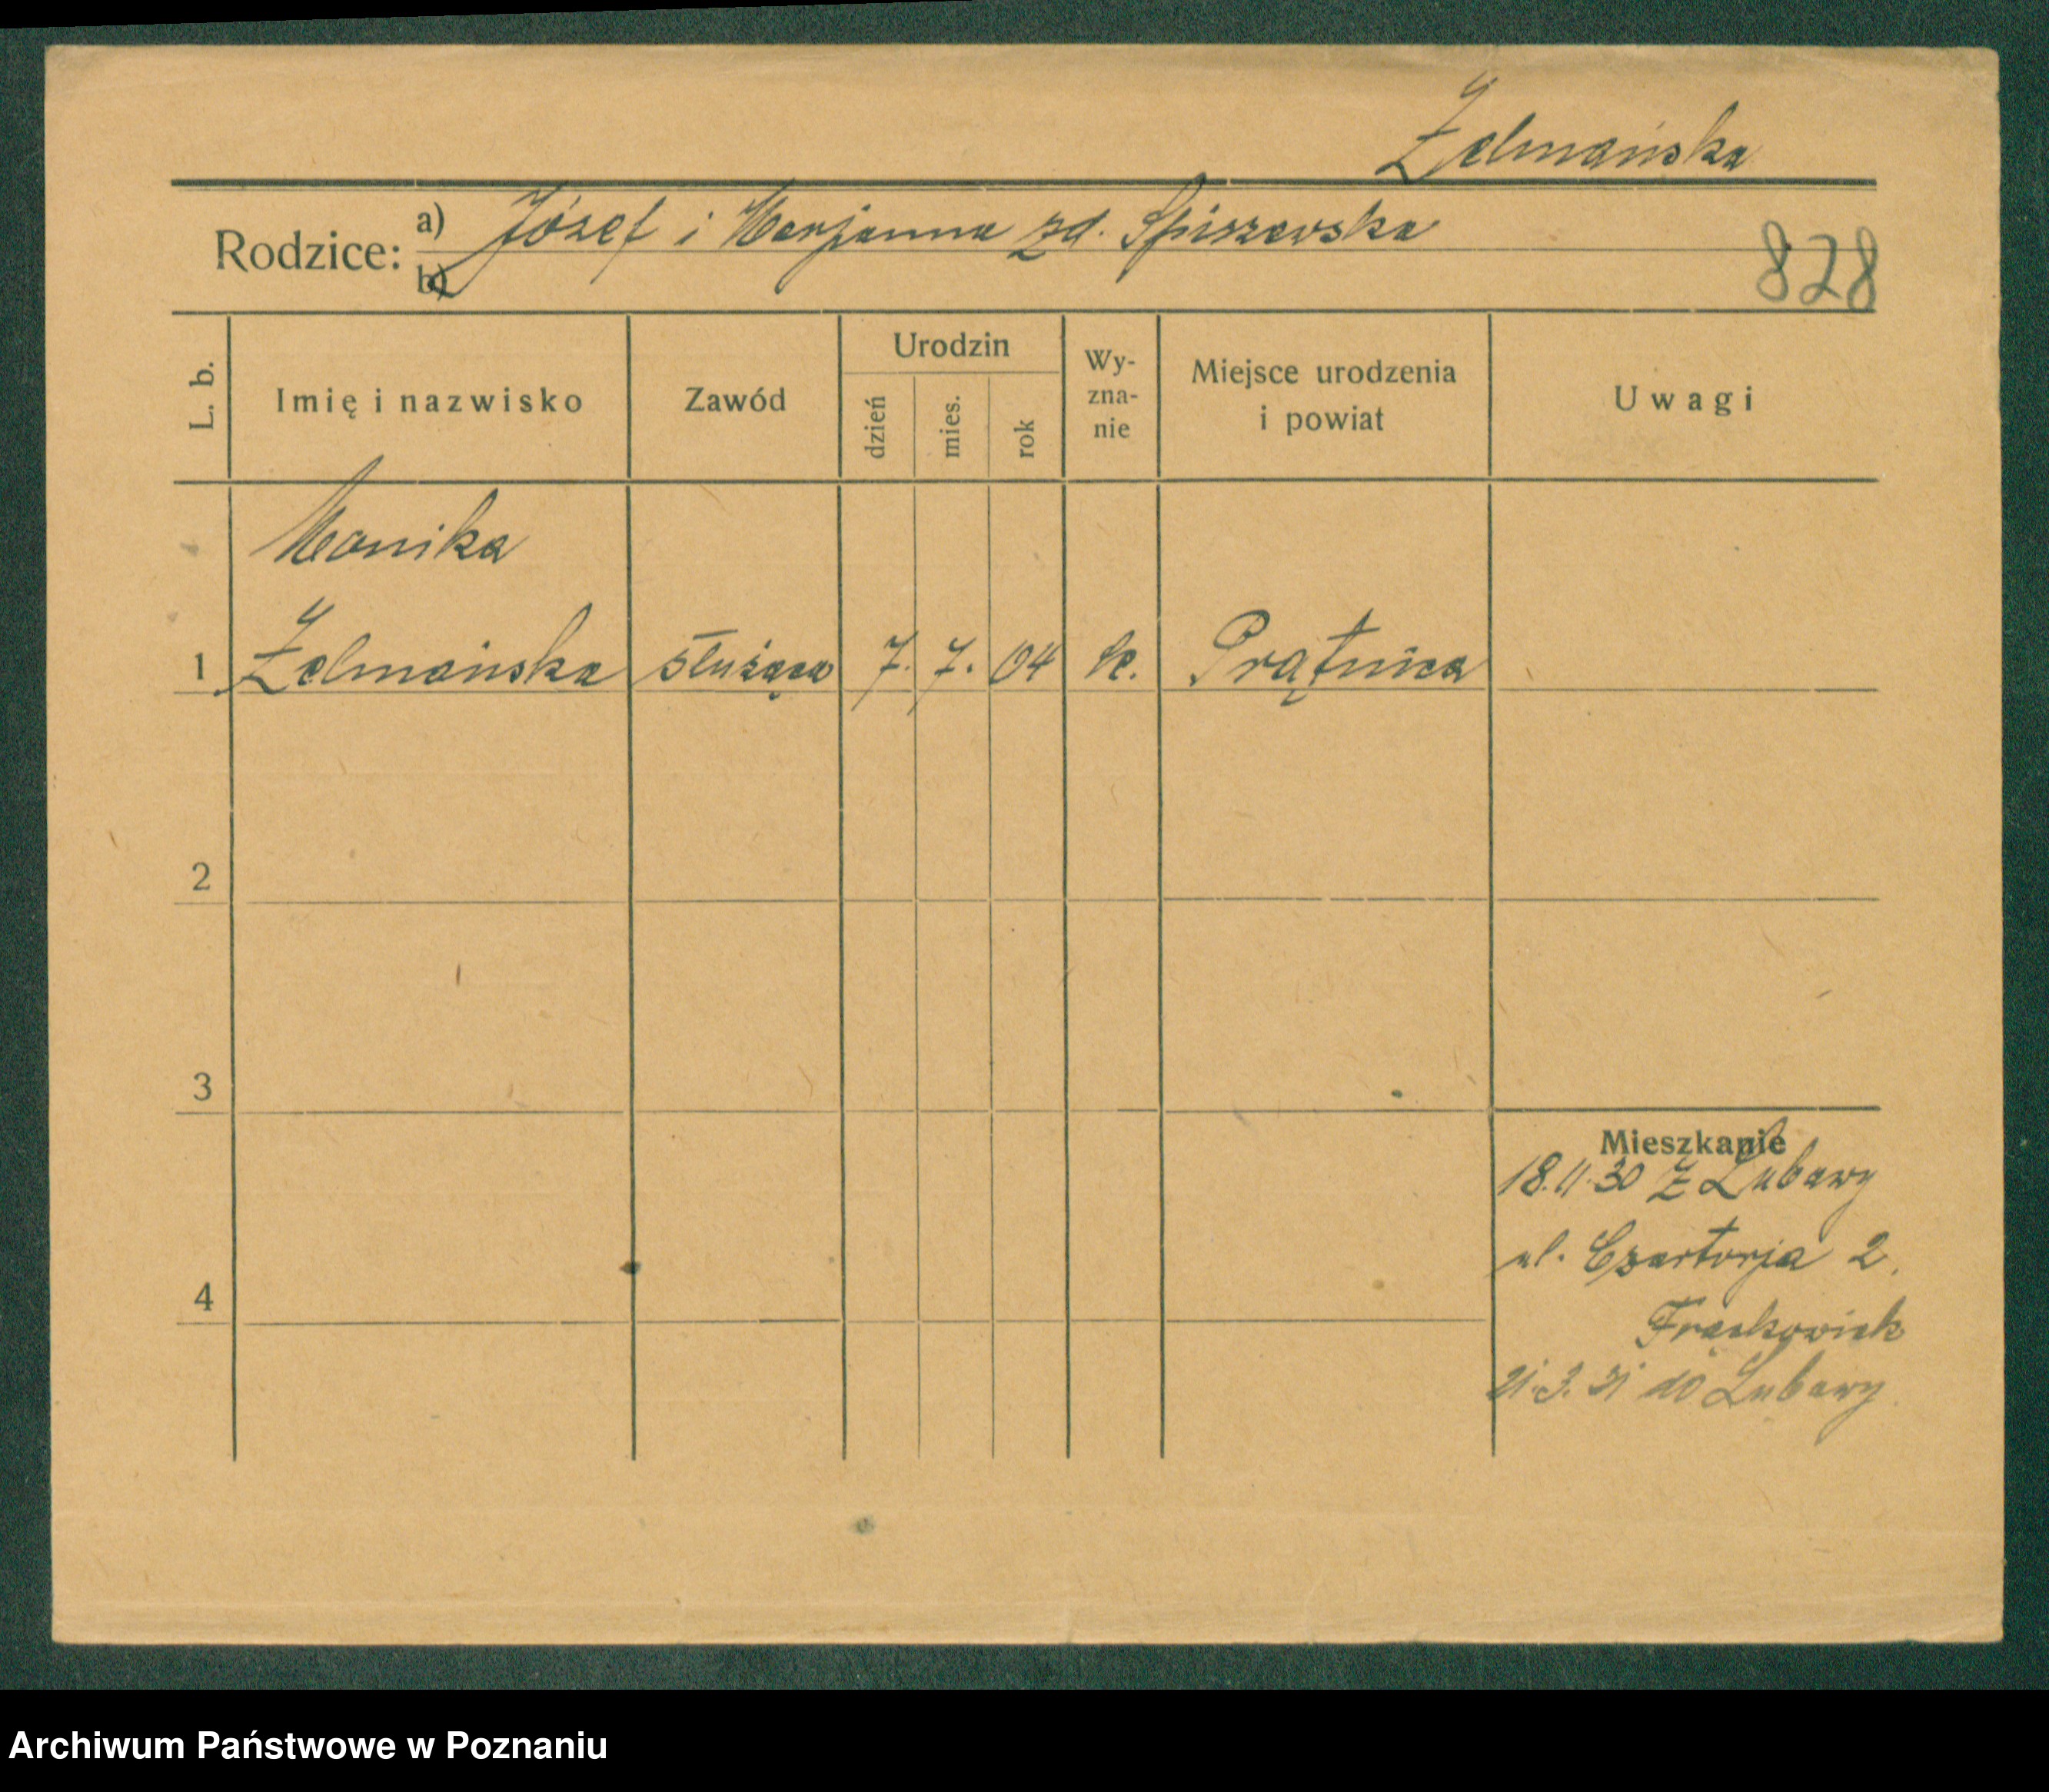 Żelmańska
Rodzice: a) Józef i Marjanna zd. Spiszewska
b)
828
L. b. Imię i nazwisko Zawód Urodzin dzień mies. rok Wy-zna-nie Miejsce urodzenia i powiat Uwagi
Monika
1 Żelmańska służąca 7. 7. 04 k. Prątnica
2
3
Mieszkanie
18.11.30 z Lubawy
ul. Czartorja 2.
4
Frąckowiak
21.3.31 do Lubawy.
Archiwum Państwowe w Poznaniu